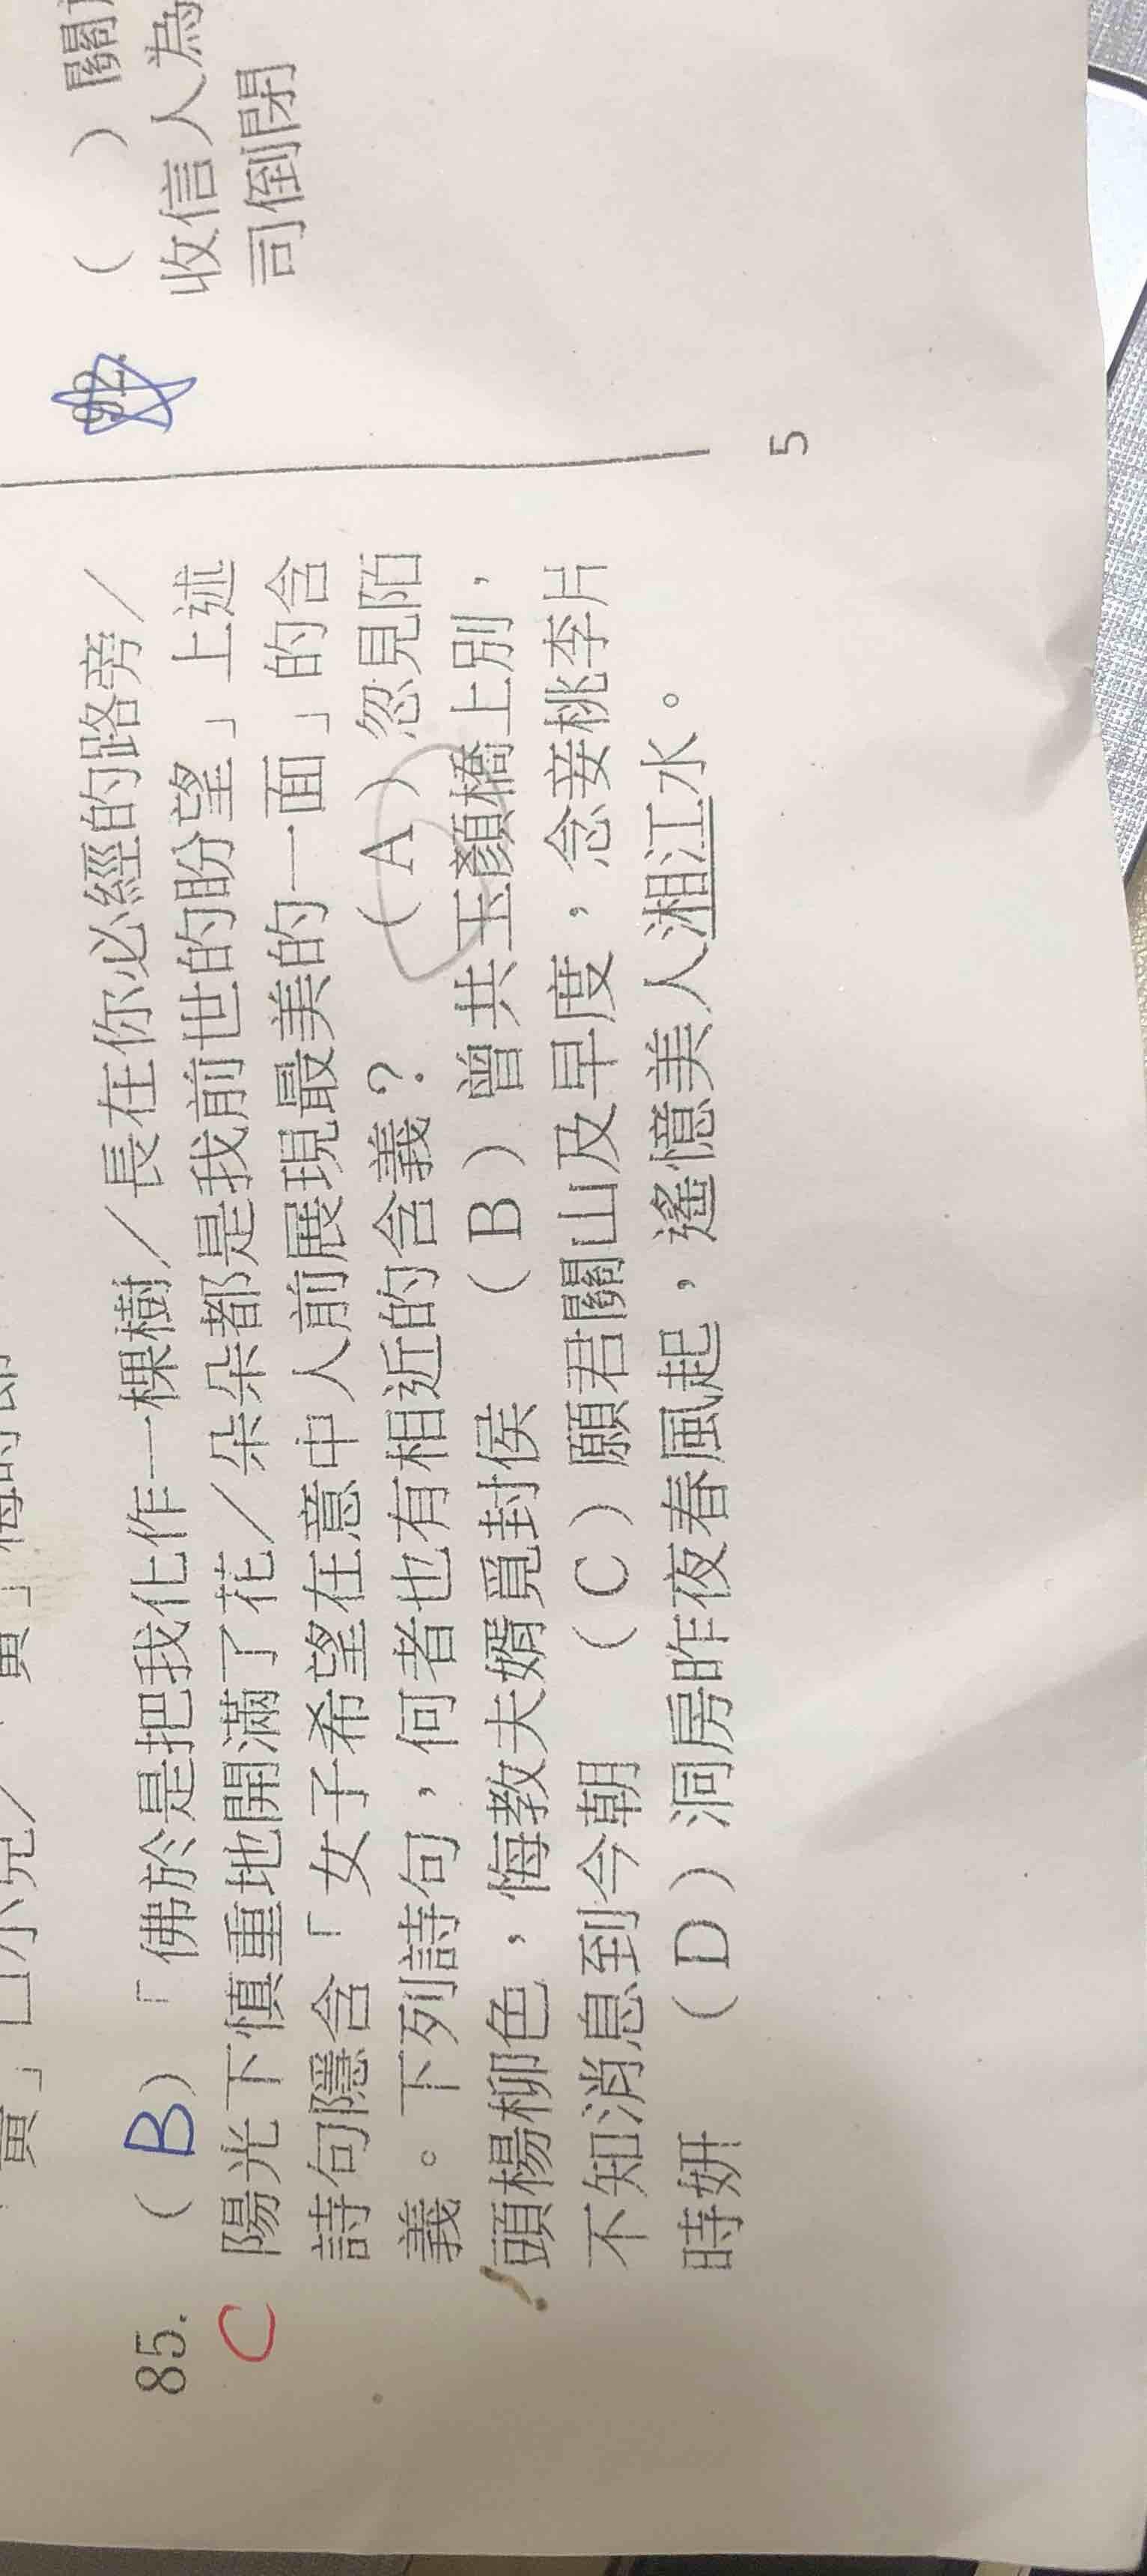 85. (B)「佛於是把我化作一棵樹／長在你必經的路旁／
C 陽光下慎重地開滿了花／朵朵都是我前世的盼望」上述
詩句隱含「女子希望在意中人前展現最美的一面」的含
義。下列詩句，何者也有相近的含義？ （A）忽見陌
頭楊柳色，悔教夫婿覓封侯 （B）曾共玉顏橋上別，
不知消息到今朝 （C）願君關山及早度，念妾桃李片
時妍 （D）洞房昨夜春風起，遙憶美人湘江水。
92. （ ）關
收信人為
司倒閉
5